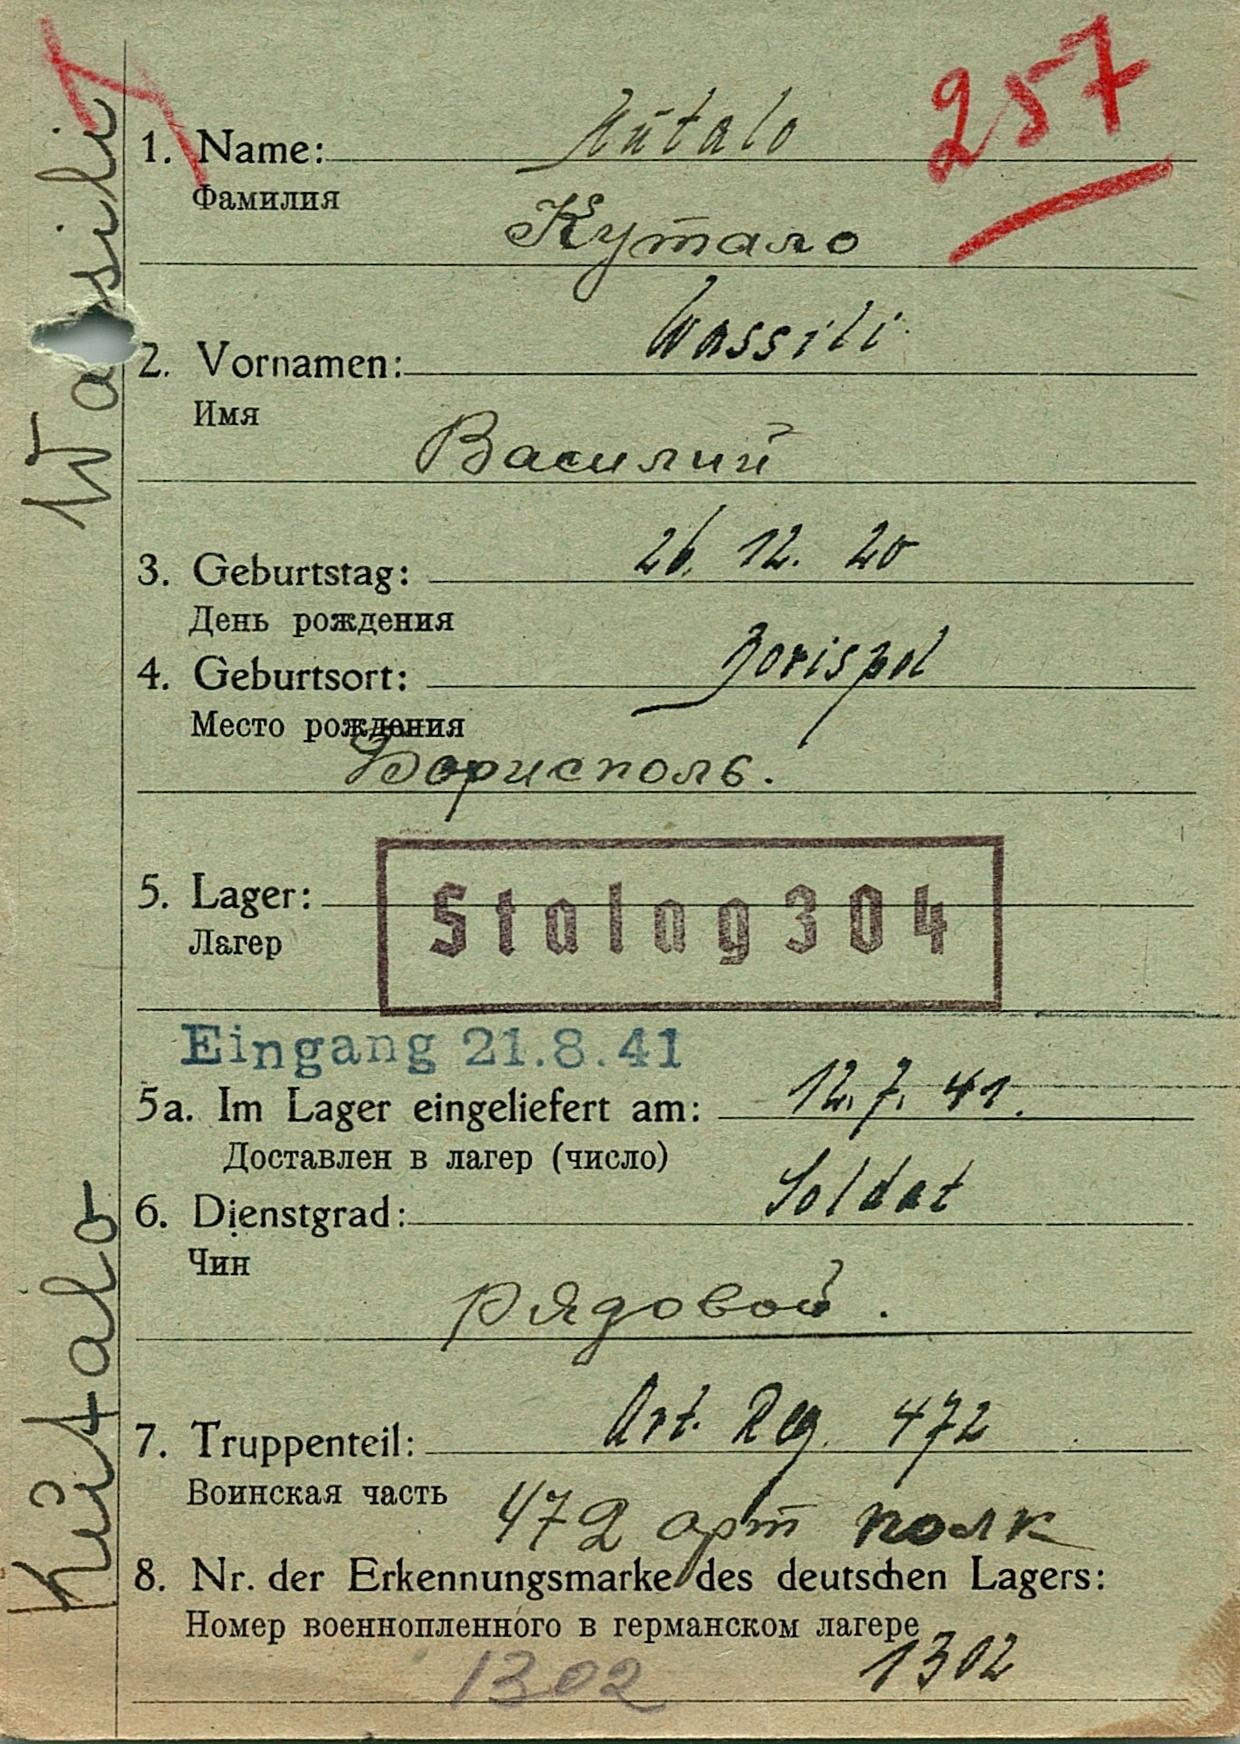 257
1. Name: Kutalo
Фамилия
Кутало
2. Vornamen: Wassili
Имя
Василий
3. Geburtstag: 26. 12. 20
День рождения
4. Geburtsort: Borispol
Место рождения
Борисполь.
5. Lager: Stalag 304
Лагер
Eingang 21.8.41
5a. Im Lager eingeliefert am: 12. 7. 41.
Доставлен в лагер (число)
6. Dienstgrad: Soldat
Чин
рядовой.
7. Truppenteil: Art. Reg. 472
Воинская часть
472 арт полк
8. Nr. der Erkennungsmarke des deutschen Lagers:
Номер военнопленного в германском лагере
1302 1302
Kutalo Wasili